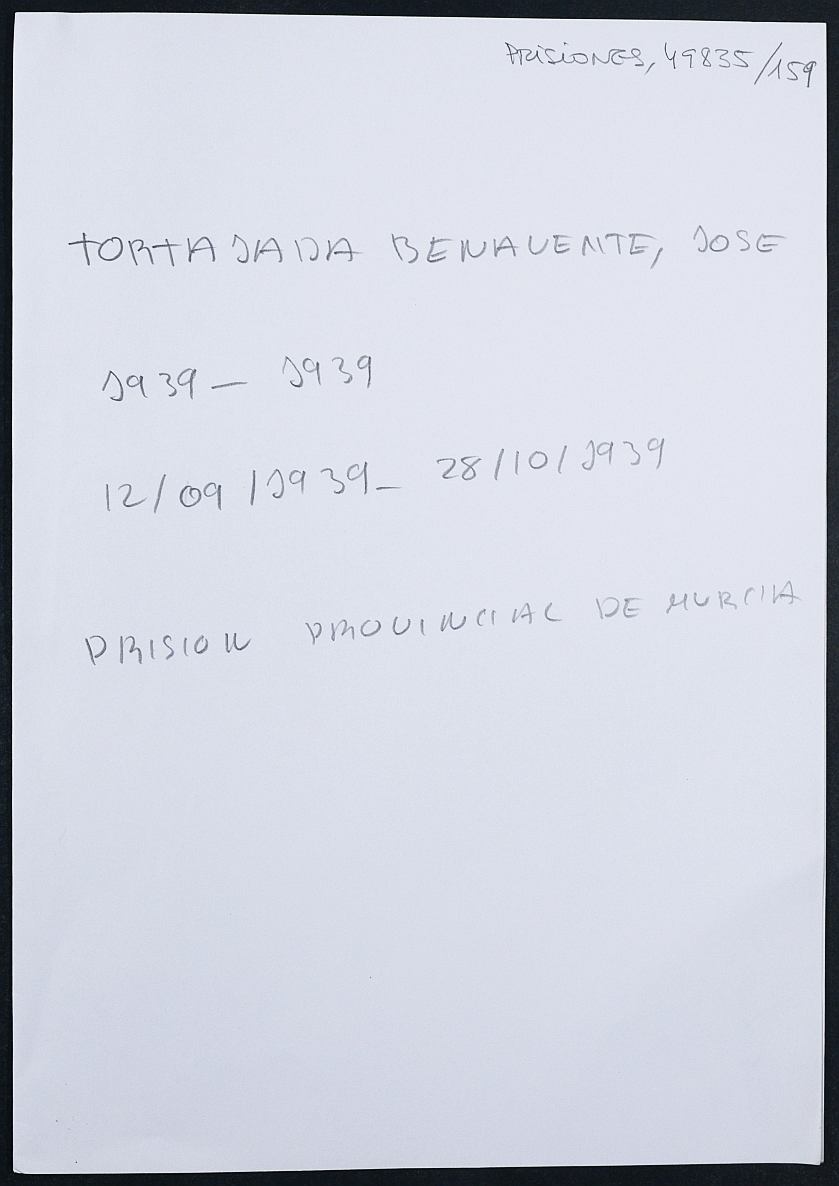 PRISIONES, 49835/159
TORTAJADA BENAVENTE, JOSE
1939 - 1939
12/09/1939 - 28/10/1939
PRISION PROVINCIAL DE MURCIA